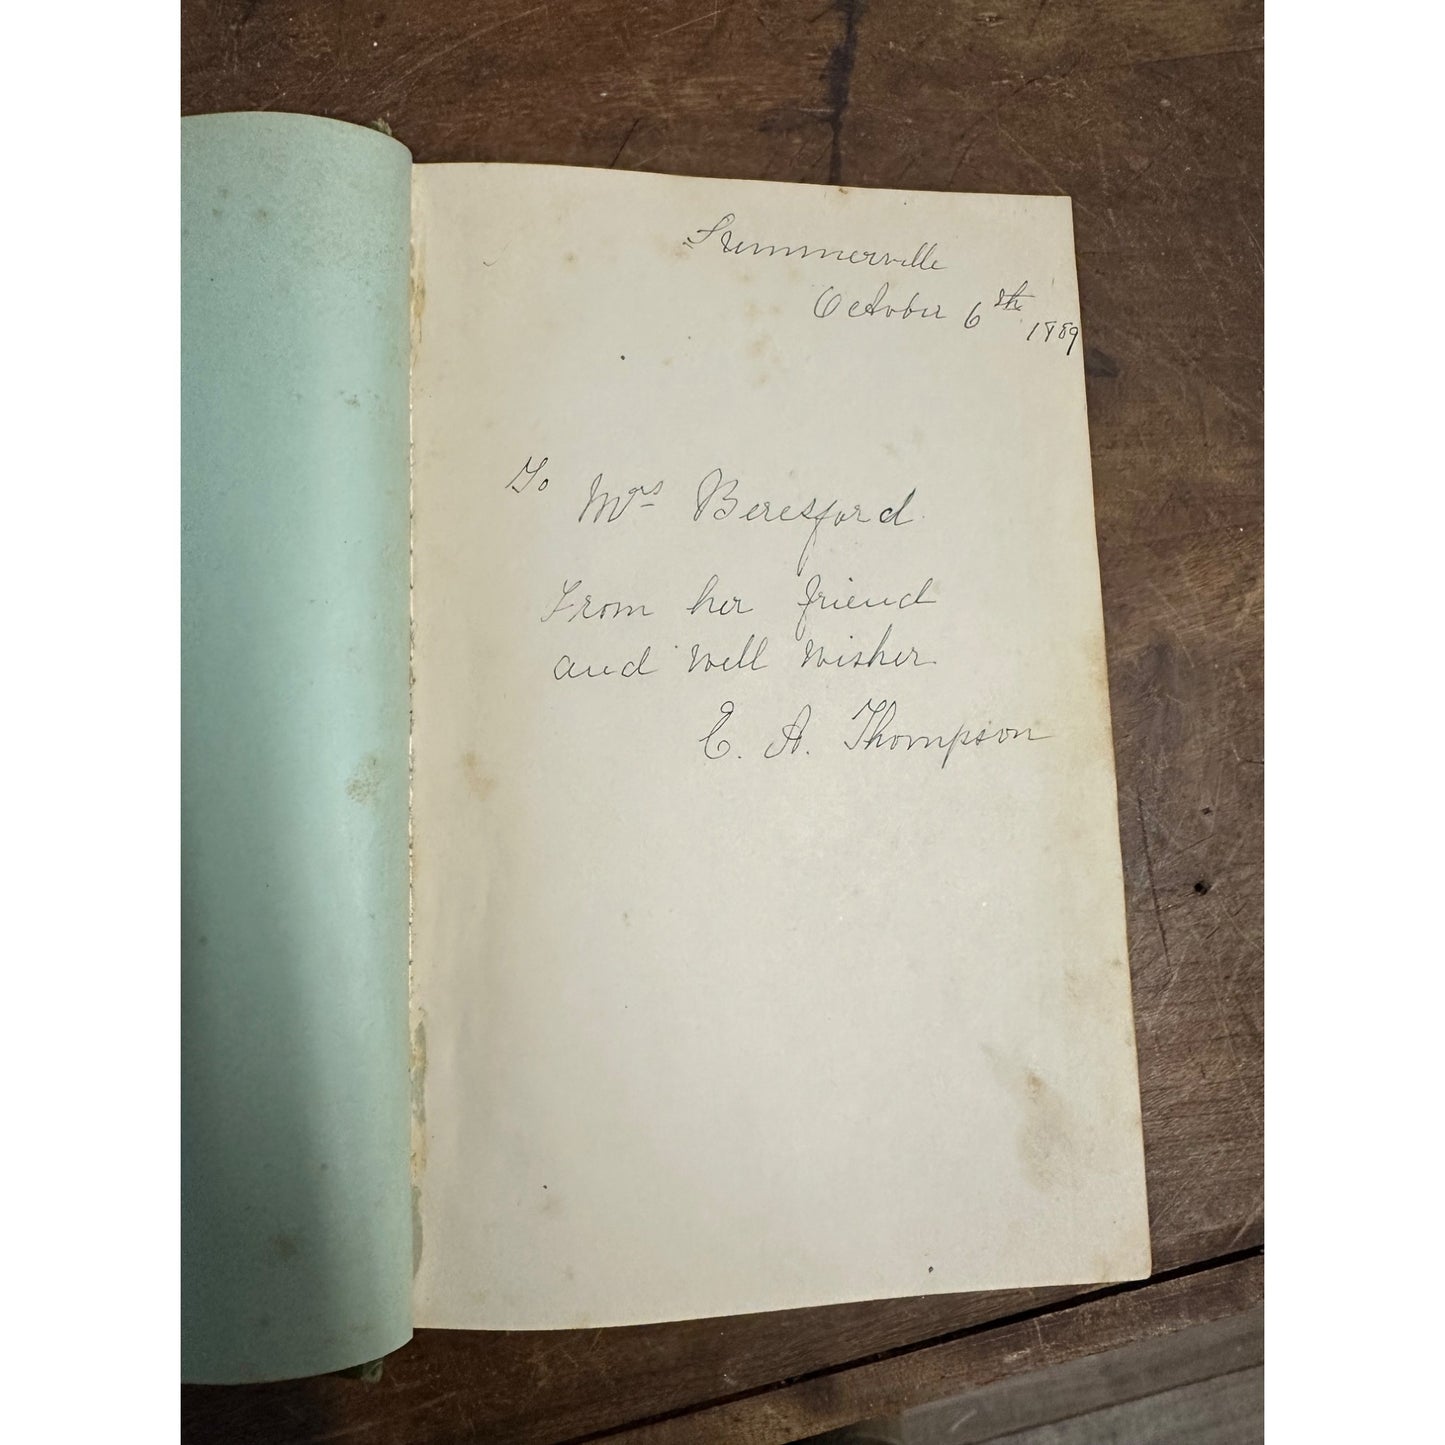 Summerville
October 6th 1889
To Mrs Beresford
From her friend
and well wisher
E. A. Thompson